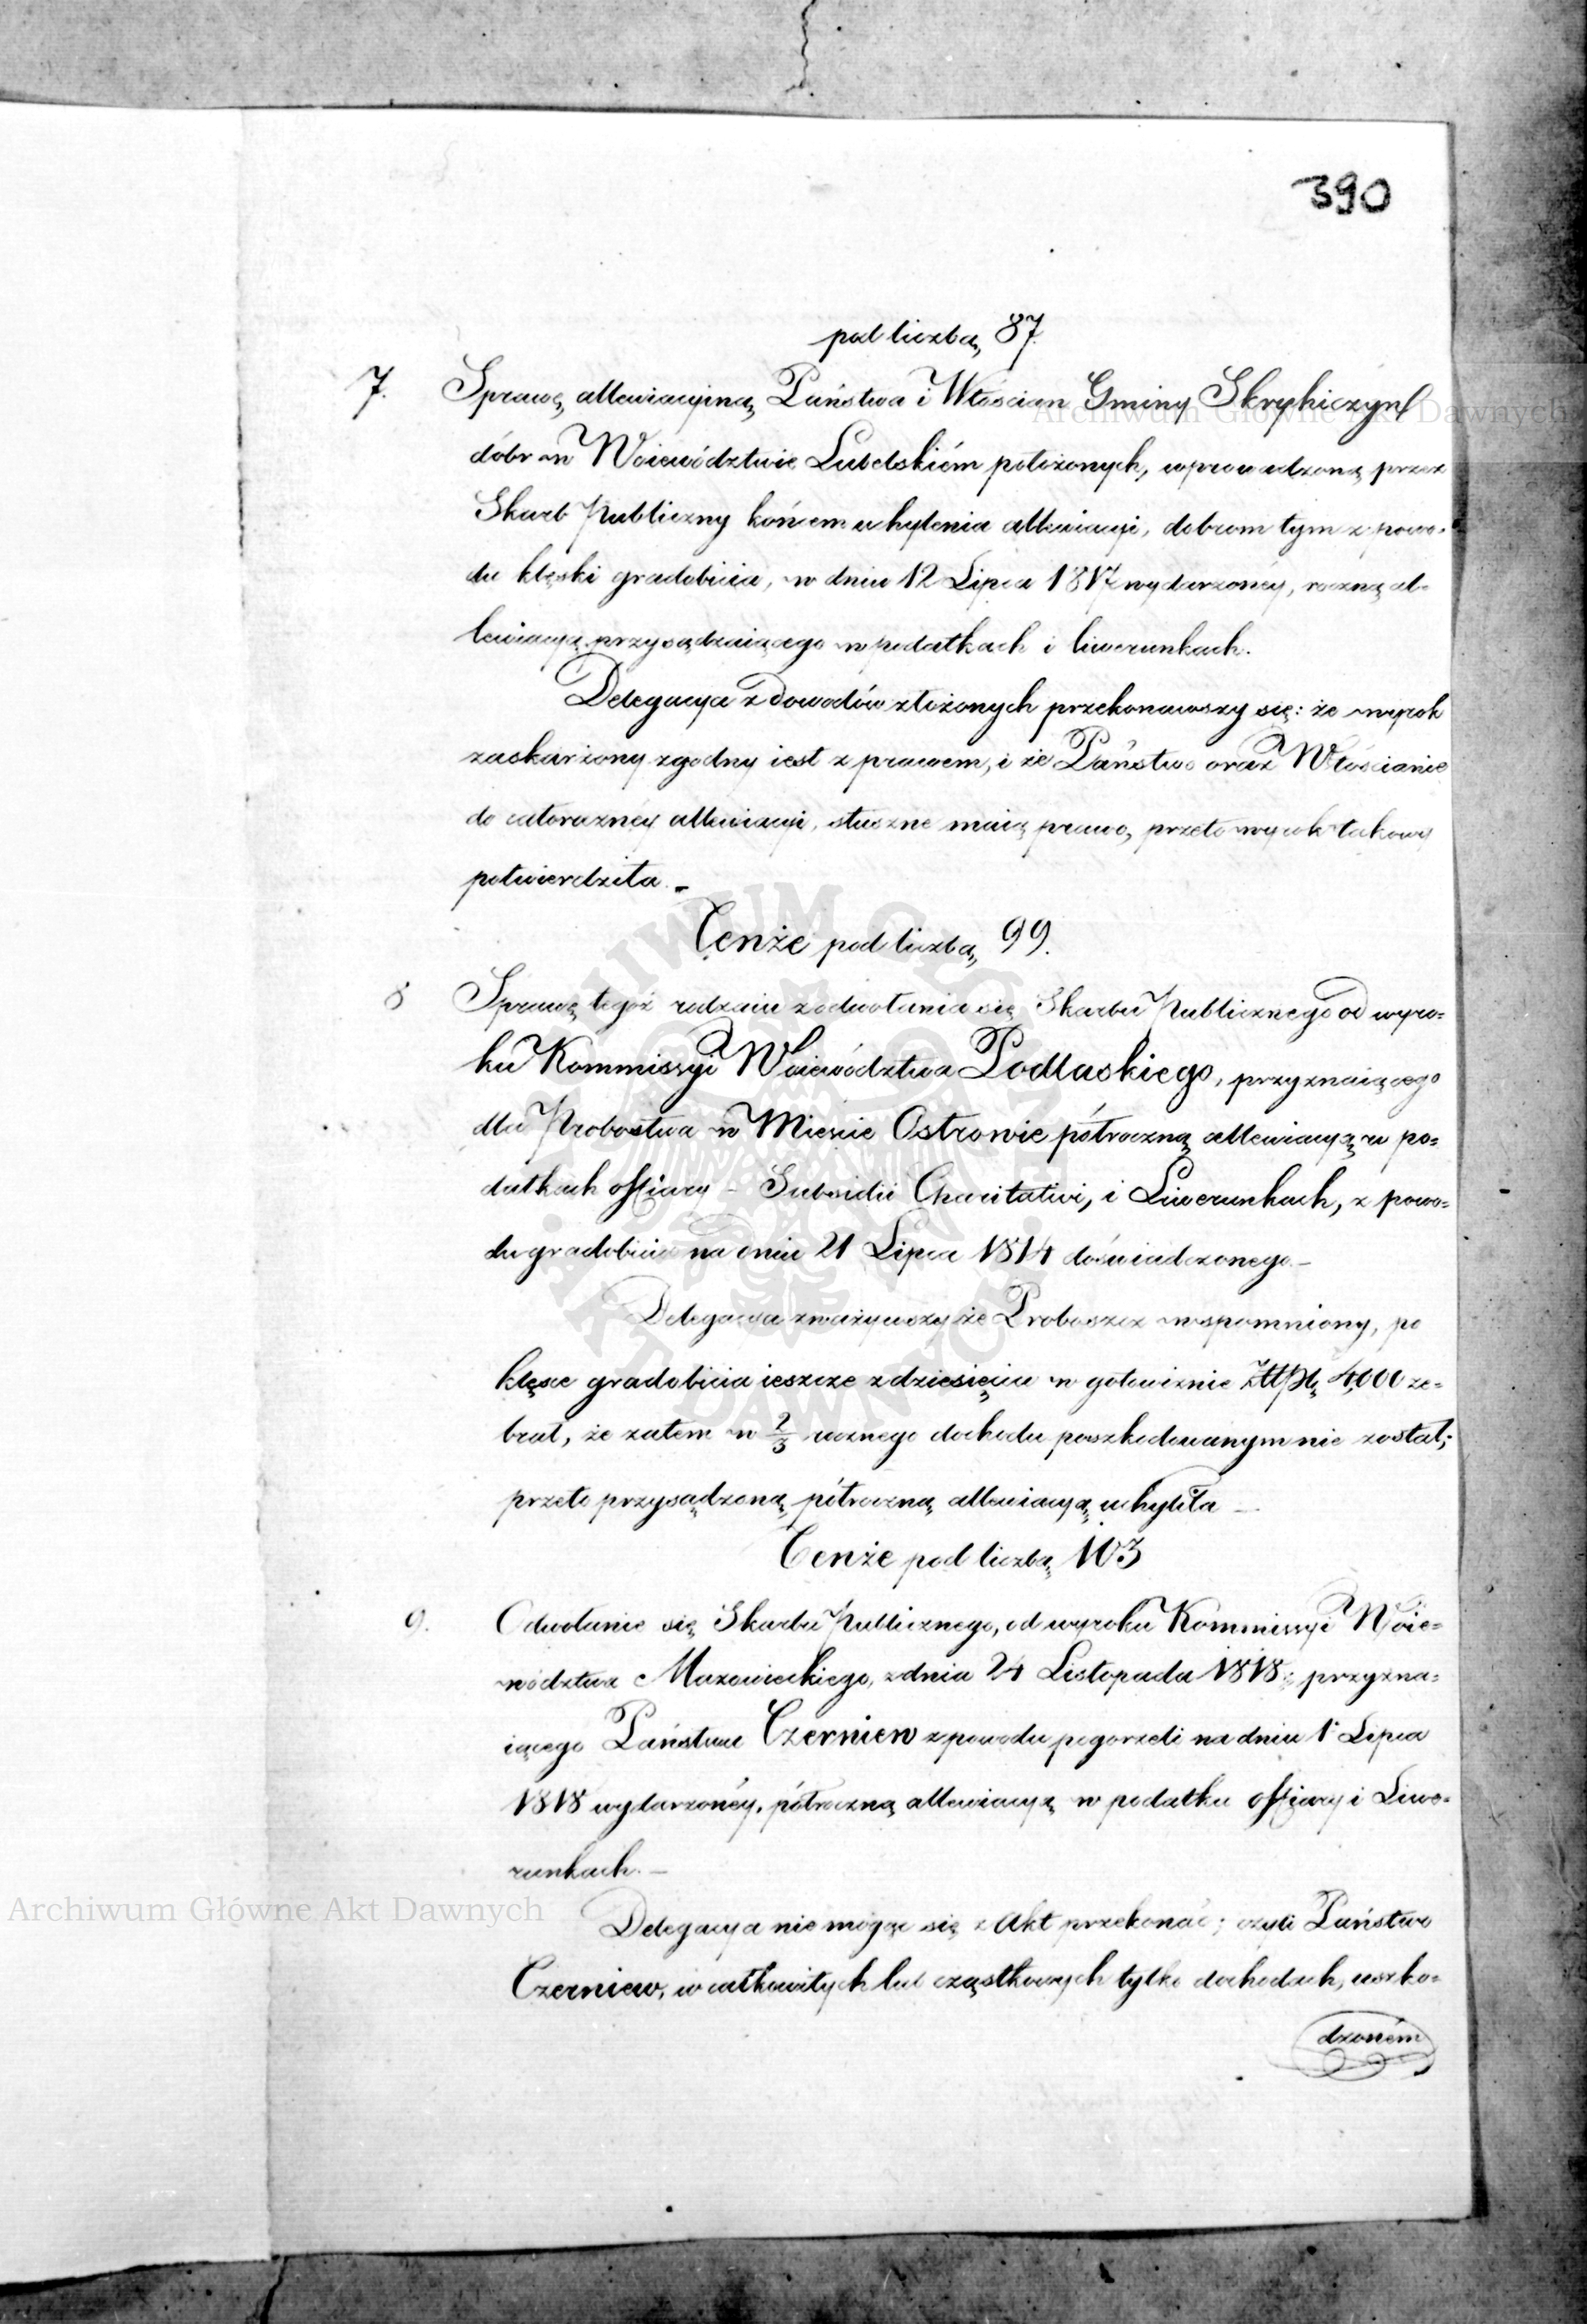 390
pod liczbą 87.
7. Sprawę allewiacyiną Państwa i Włościan Gminy Skryhiczyn
dóbr w Woiewództwie Lubelskiém położonych, wprowadzoną przez
Skarb Publiczny końcem uchylenia allewiacyi, dobrom tym z powo=
du klęski gradobicia, w dniu 12 Lipca 1817 wydarzonéy, roczną al=
lewiacyą przysądzaiącego w podatkach i liwerunkach.
Delegacya z dowodów złożonych przekonawszy się: że wyrok
zaskarżony zgodny iest z prawem, i że Państwo oraz Włościanie
do całorocznéy allewiacyi, słuszne maią prawo, przeto wyrok takowy
potwierdziła. –
Tenże pod liczbą 99.
8 Sprawę tegoż rodzaiu z odwołania się Skarbu Publicznego od wyro=
ku Kommissyi Woiewództwa Podlaskiego, przyznaiącego
dla Probostwa w Mieście Ostrowie półroczną allewiacyą w po=
datkach offiary – Subsidii Charitativi, i Liwerunkach, z powo=
du gradobicia na dniu 21 Lipca 1814 doświadczonego. –
Delegacya zważywszy że Proboszcz wspomniony, po
klęsce gradobicia ieszcze z dziesięciu w gotowiźnie 4,000 ze=
brał, że zatem w 2/3 rocznego dochodu poszkodowanym nie został;
przeto przysądzoną półroczną allewiacyą uchyliła –
Tenże pod liczbą 103
9. Odwołanie się Skarbu Publicznego, od wyroku Kommissyi Woie=
wództwa Mazowieckiego, z dnia 24 Listopada 1818; przyzna=
iącego Państwu Czerniew z powodu pogorzeli na dniu 1 Lipca
1818 wydarzonéy, półroczną allewiacyą w podatku offiary i Liwe=
runkach. –
Delegacya nie mogąc się z Akt przekonać; czyli Państwo
Czerniew, w całkowitych lub cząstkowych tylko dochodach, uszko=
dzoném
Archiwum Główne Akt Dawnych
Archiwum Główne Akt Dawnych